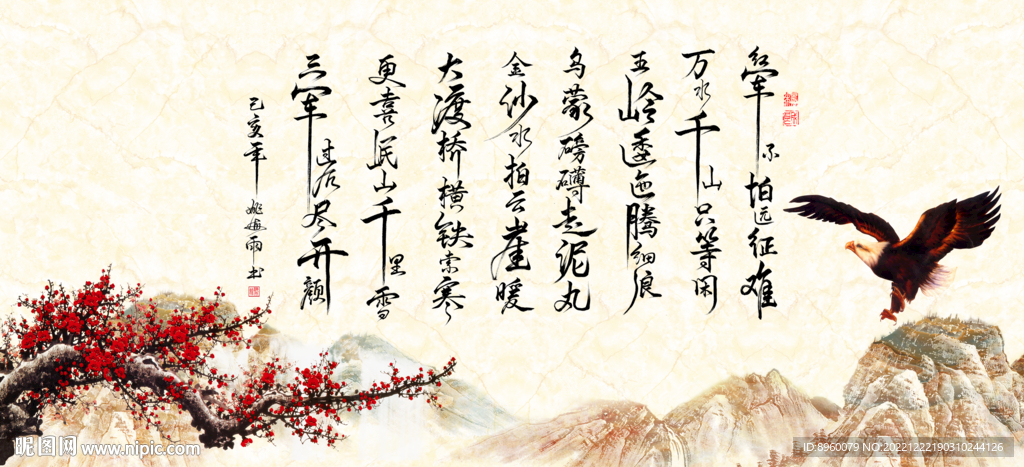 红军不怕远征难
万水千山只等闲
五岭逶迤腾细浪
乌蒙磅礴走泥丸
金沙水拍云崖暖
大渡桥横铁索寒
更喜岷山千里雪
三军过后尽开颜
己亥年
雨书
昵图网 www.nipic.com
ID:8960079 NO:20221222190310244126